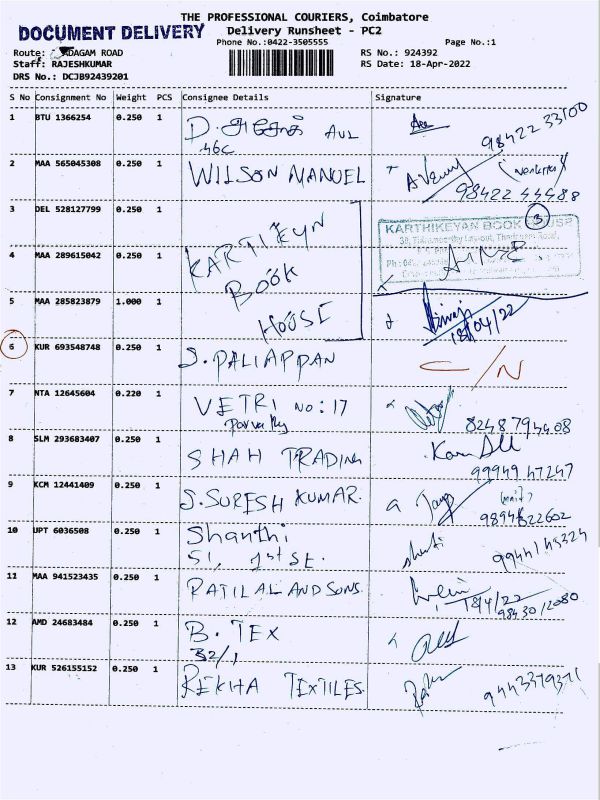 THE PROFESSIONAL COURIERS, Coimbatore
DOCUMENT DELIVERY
Delivery Runsheet - PC2
Phone No.:0422-3505555
Page No.:1
Route: ADAGAM ROAD
RS No.: 924392
Staff: RAJESHKUMAR
RS Date: 18-Apr-2022
DRS No.: DCJB92439201
S No Consignment No Weight PCS Consignee Details Signature
1 BTU 1366254 0.250 1 D. அசோக் AVL 98422 33100
46C
2 MAA 565045308 0.250 1 WILSON MANUEL
98422 44488
3 DEL 528127799 0.250 1 3
KARTHIKEYAN BOOK HOUSE
4 MAA 289615042 0.250 1 KARTIKEYN
BOOK
5 MAA 285823879 1.000 1 HOUSE 18/04/22
6 KUR 693548748 0.250 1 S. PALIAPPAN C/N
7 NTA 12645604 0.220 1 VETRI NO: 17
8248794408
8 SLM 293683407 0.250 1 SHAH TRADING
99949 47247
9 KCM 12441409 0.250 1 S. SURESH KUMAR
10 UPT 6036508 0.250 1 Shanthi
51, 1st St.
11 MAA 941523435 0.250 1 RATILAL AND SONS 18/4/22
98430 12080
12 AMD 24683484 0.250 1 B. TEX
32/1
13 KUR 526155152 0.250 1 REKHA TEXTILES